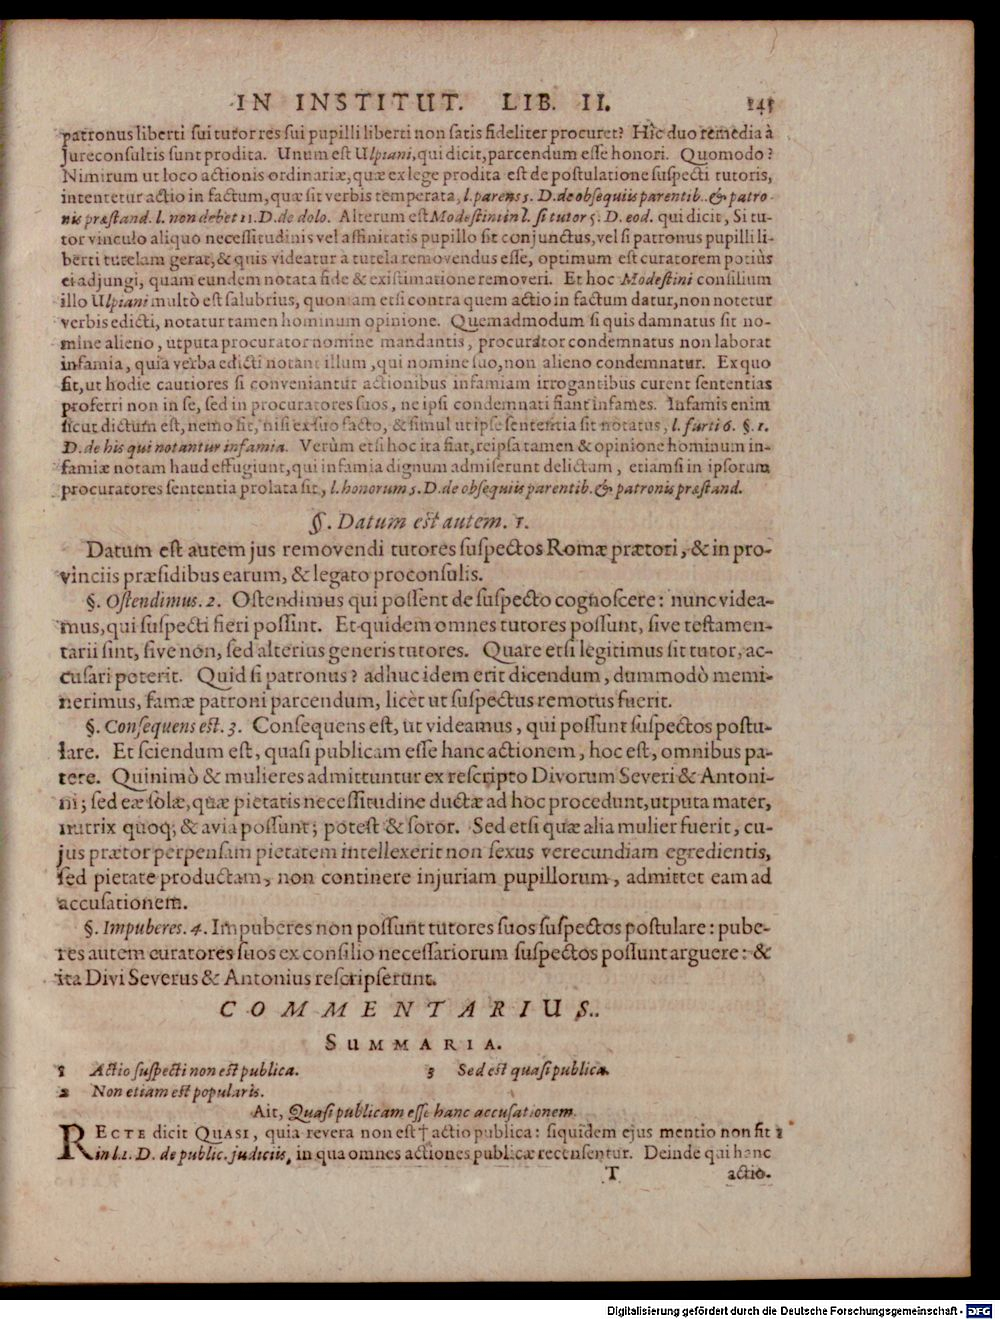 IN INSTITUT. LIB. II. 141
patronus liberti sui tutor res sui pupilli liberti non satis fideliter procuret? Hîc duo remedia à
Jureconsultis sunt prodita. Unum est Ulpiani, qui dicit, parcendum esse honori. Quomodo?
Nimirum ut loco actionis ordinariæ, quæ ex lege prodita est de postulatione suspecti tutoris,
intentetur actio in factum, quæ sit verbis temperata, l. parens 5. D. de obsequiis parentib. & patro-
nis præstand. l. non debet 11. D. de dolo. Alterum est Modestini in l. si tutor 5. D. eod. qui dicit, Si tu-
tor vinculo aliquo necessitudinis vel affinitatis pupillo sit conjunctus, vel si patronus pupilli li-
berti tutelam gerat, & quis videatur a tutela removendus esse, optimum est curatorem potius
ei adjungi, quam eundem notata fide & existimatione removeri. Et hoc Modestini consilium
illo Ulpiani multò est salubrius, quoniam etsi contra quem actio in factum datur, non notetur
verbis edicti, notatur tamen hominum opinione. Quemadmodum si quis damnatus sit no-
mine alieno, utputa procurator nomine mandantis, procurator condemnatus non laborat
infamia, quia verba edicti notant illum, qui nomine suo, non alieno condemnatur. Ex quo
fit, ut hodie cautiores si conveniantur actionibus infamiam irrogantibus curent sententias
proferri non in se, sed in procuratores suos, ne ipsi condemnati fiant infames. Infamis enim
sicut dictum est, nemo fit, nisi ex suo facto, & simul ut ipse sententia sit notatus, l. furti 6. §. 1.
D. de his qui notantur infamia. Verùm etsi hoc ita fiat, reipsa tamen & opinione hominum in-
famiæ notam haud effugiunt, qui infamia dignum admiserunt delictum, etiamsi in ipsorum
procuratores sententia prolata sit, l. honorum 5. D. de obsequiis parentib. & patronis præstand.
§. Datum est autem. 1.
Datum est autem jus removendi tutores suspectos Romæ prætori, & in pro-
vinciis præsidibus earum, & legato proconsulis.
§. Ostendimus. 2. Ostendimus qui possent de suspecto cognoscere: nunc videa-
mus, qui suspecti fieri possint. Et quidem omnes tutores possunt, sive testamen-
tarii sint, sive non, sed alterius generis tutores. Quare etsi legitimus sit tutor, ac-
cusari poterit. Quid si patronus? adhuc idem erit dicendum, dummodò memi-
nerimus, famæ patroni parcendum, licèt ut suspectus remotus fuerit.
§. Consequens est. 3. Consequens est, ut videamus, qui possunt suspectos postu-
lare. Et sciendum est, quasi publicam esse hanc actionem, hoc est, omnibus pa-
tere. Quinimò & mulieres admittuntur ex rescripto Divorum Severi & Antoni-
ni; sed eæ solæ, quæ pietatis necessitudine ductæ ad hoc procedunt, utputa mater,
nutrix quoq; & avia possunt; potest & soror. Sed etsi quæ alia mulier fuerit, cu-
jus prætor perpensam pietatem intellexerit non sexus verecundiam egredientis,
sed pietate productam, non continere injuriam pupillorum, admittet eam ad
accusationem.
§. Impuberes. 4. Impuberes non possunt tutores suos suspectos postulare: pube-
res autem curatores suos ex consilio necessariorum suspectos possunt arguere: &
ita Divi Severus & Antonius rescripserunt.
COMMENTARIUS.
SUMMARIA.
1 Actio suspecti non est publica. 3 Sed est quasi publica.
2 Non etiam est popularis.
Ait, Quasi publicam esse hanc accusationem.
RECTE dicit QUASI, quia revera non est † actio publica: siquidem ejus mentio non fit 1
in l. 1. D. de public. judiciis, in qua omnes actiones publicæ recensentur. Deinde qui hanc
T actio.
Digitalisierung gefördert durch die Deutsche Forschungsgemeinschaft - DFG